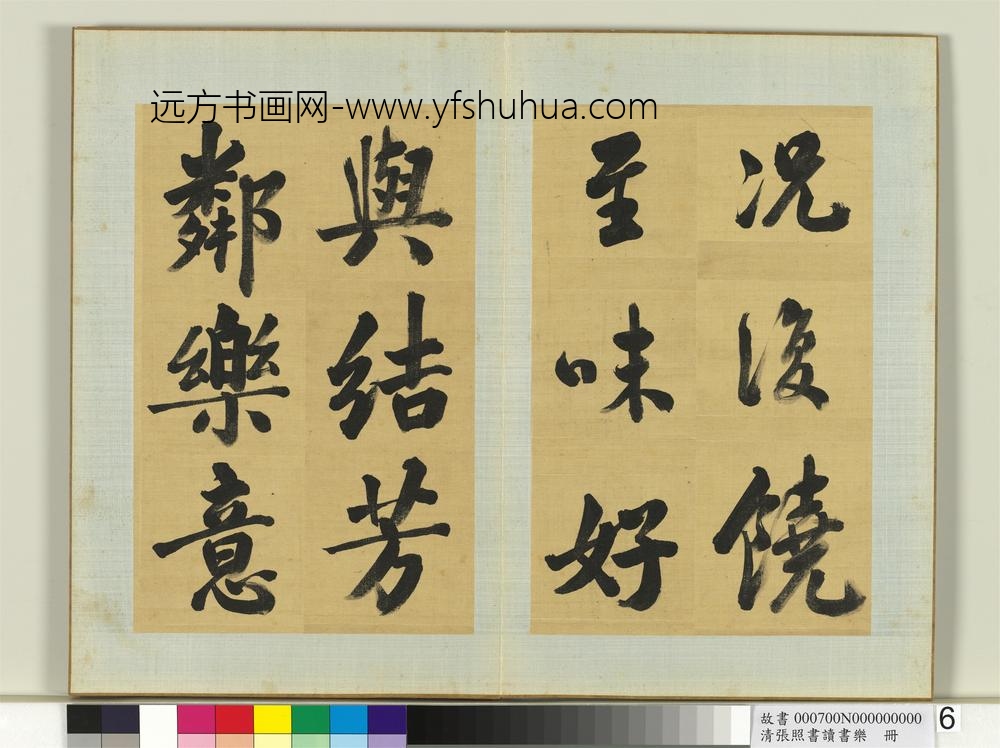 远方书画网-www.yfshuhua.com
況復饒
至味好
與結芳
鄰樂意
故書 000700N000000000
清張照書讀書樂 冊
6